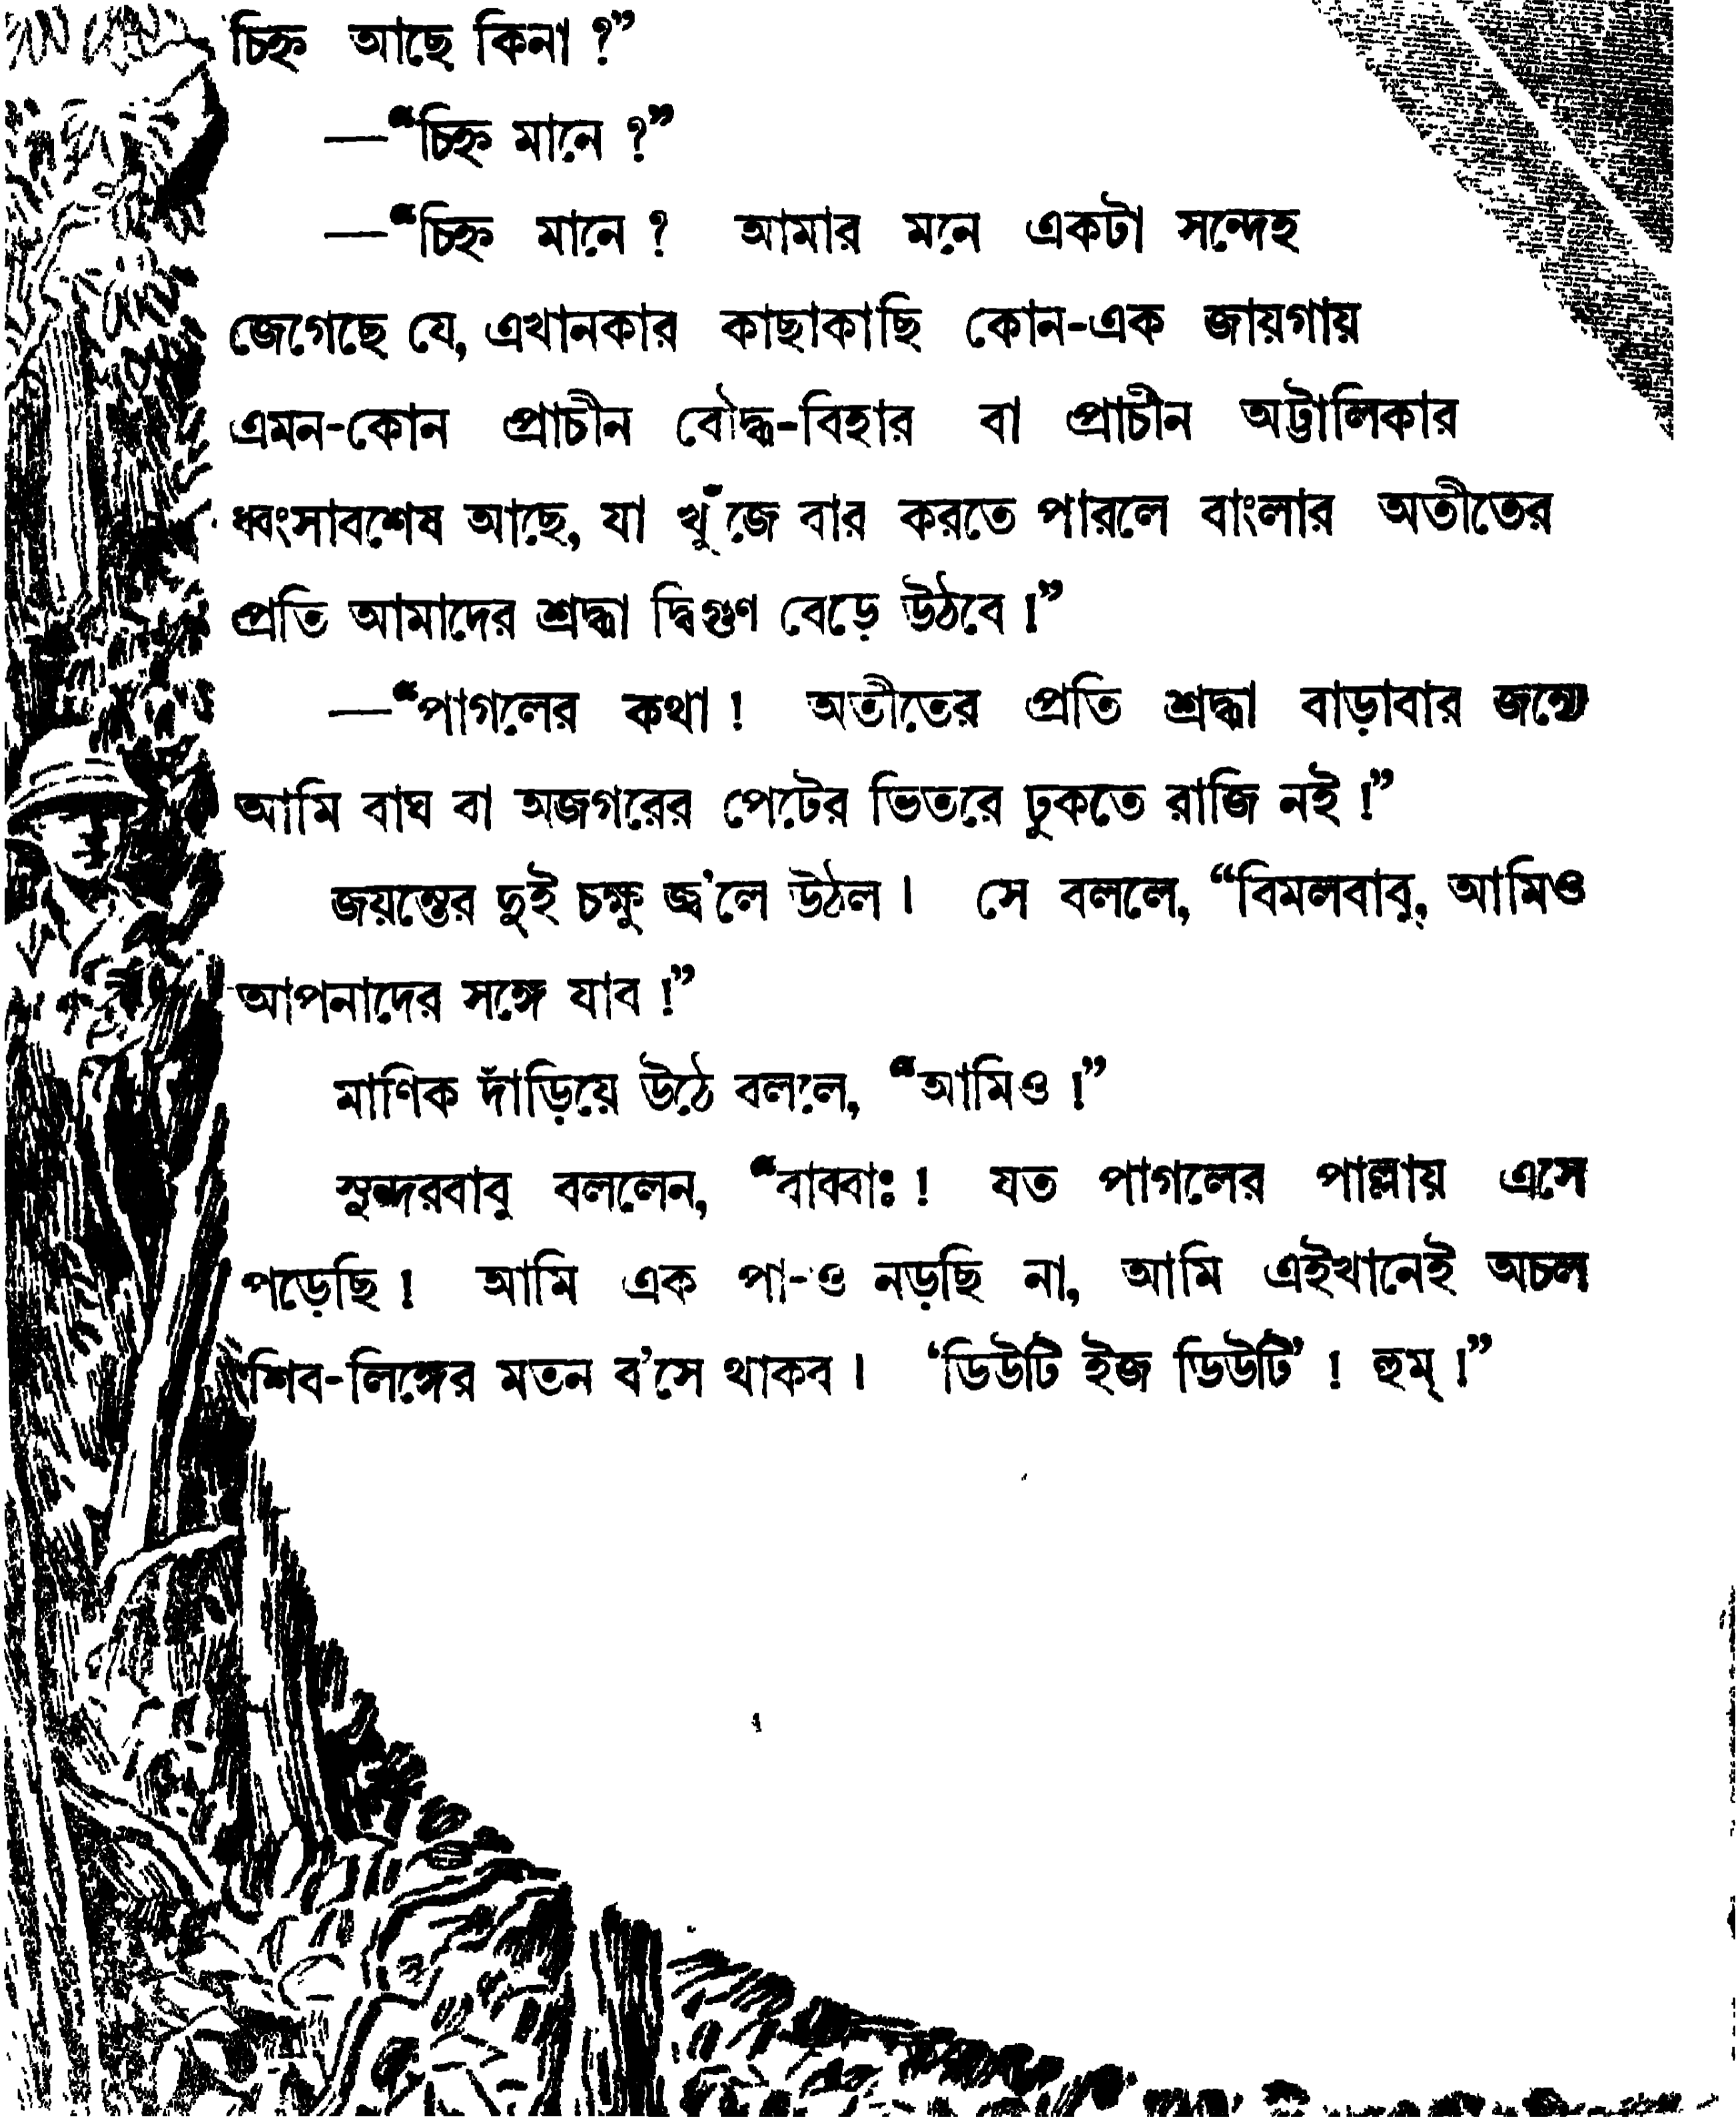 চিহ্ন আছে কিনা ?”
—“চিহ্ন মানে ?”
—“চিহ্ন মানে ? আমার মনে একটা সন্দেহ
জেগেছে যে, এখানকার কাছাকাছি কোন-এক জায়গায়
এমন-কোন প্রাচীন বৌদ্ধ-বিহার বা প্রাচীন অট্টালিকার
ধ্বংসাবশেষ আছে, যা খুঁজে বার করতে পারলে বাংলার অতীতের
প্রতি আমাদের শ্রদ্ধা দ্বিগুণ বেড়ে উঠবে !”
—“পাগলের কথা ! অতীতের প্রতি শ্রদ্ধা বাড়াবার জন্যে
আমি বাঘ বা অজগরের পেটের ভিতরে ঢুকতে রাজি নই !”
জয়ন্তের দুই চক্ষু জ্ব’লে উঠল । সে বললে, “বিমলবাবু, আমিও
আপনাদের সঙ্গে যাব !”
মাণিক দাঁড়িয়ে উঠে বললে, “আমিও !”
সুন্দরবাবু বললেন, “বাব্বাঃ ! যত পাগলের পাল্লায় এসে
পড়েছি ! আমি এক পা-ও নড়ছি না, আমি এইখানেই অচল
শিব-লিঙ্গের মতন ব’সে থাকব । ‘ডিউটি ইজ ডিউটি’ ! হুম্ !”